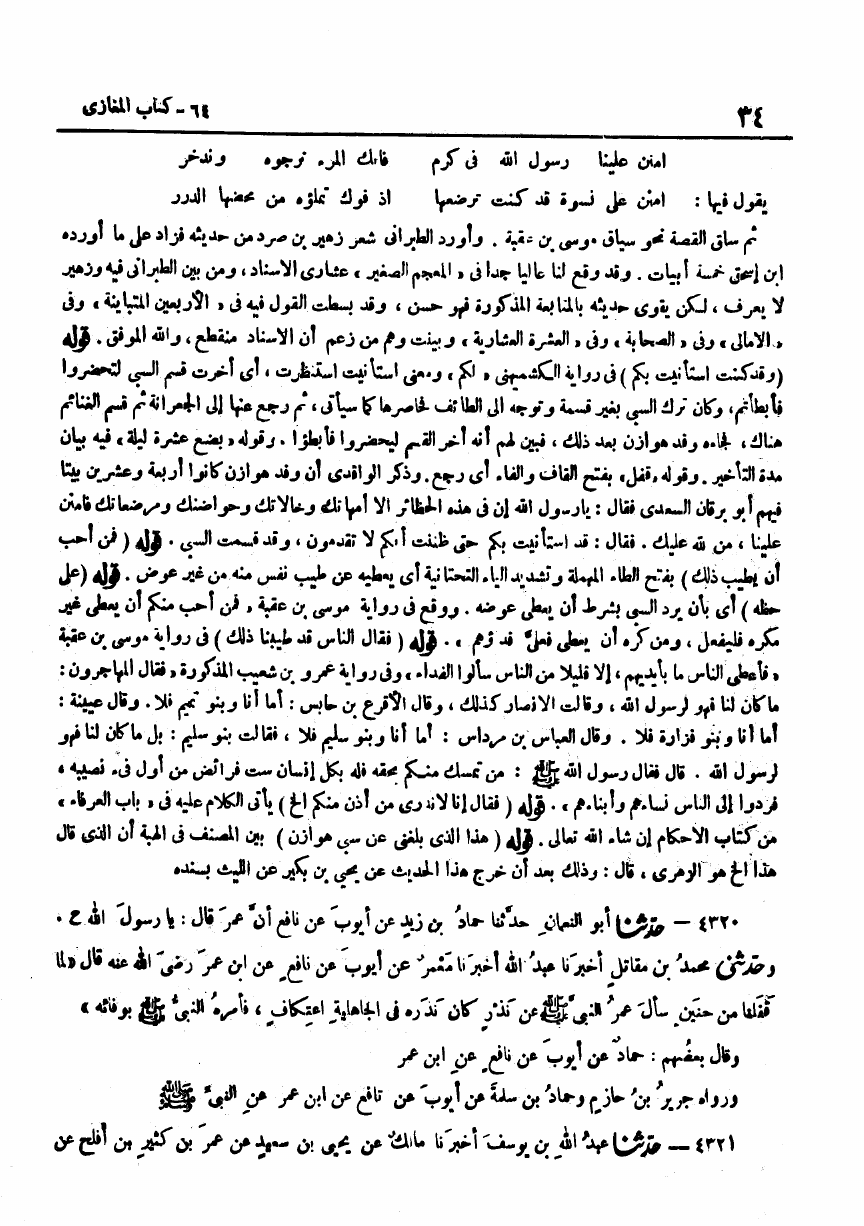 ٣٤ ٦٤ - كتاب المغازى
امنن علينا رسول الله فى كرم فانك المرء ترجوه وندخر
يقول فيها : امنن على نسوة قد كنت ترضعها اذ فوك تملؤه من محضها الدرر
ثم ساق القصة نحو سياق موسى بن عقبة . وأورد الطبرانى شعر زهير بن صرد من حديثه فزاد على ما أورده
ابن إسحق خمسة أبيات . وقد وقع لنا عاليا جدا فى « المعجم الصغير » عشارى الاسناد ، ومن بين الطبرانى فيه وزهير
لا يعرف ، لكن يقوى حديثه بالمتابعة المذكورة فهو حسن ، وقد بسطت القول فيه فى « الأربعين المتباينة » وفى
« الامالى » وفى « الصحابة » وفى « العشرة العشارية » وبينت وهم من زعم أن الاسناد منقطع ، والله الموفق . قوله
( وقد كنت استأنيت بكم ) فى رواية الكشميهنى « لكم » ومعنى استأنيت استنظرت ، أى أخرت قسم السبى لتحضروا
فأبطأتم ، وكان ترك السبى بغير قسمة وتوجه الى الطائف فحاصرها كما سيأتى ، ثم رجع عنها إلى الجعرانة ثم قسم الغنائم
هناك ، فجاءه وفد هوازن بعد ذلك ، فبين لهم أنه أخر القسم ليحضروا فأبطؤا . وقوله « بضع عشرة ليلة » فيه بيان
مدة التأخير . وقوله « قفل » بفتح القاف والفاء أى رجع . وذكر الواقدى أن وفد هوازن كانوا أربعة وعشرين بيتا
فيهم أبو برقان السعدى فقال : يا رسول الله إن فى هذه الحظائر الا أمهاتك وخالاتك وحواضنك ومرضعاتك فامنن
علينا ، من الله عليك . فقال : قد استأنيت بكم حتى ظننت أنكم لا تقدمون ، وقد قسمت السبى . قوله ( فمن أحب
أن يطيب ذلك ) بفتح الطاء المهملة وتشديد الياء التحتانية أى يعطيه عن طيب نفس منه من غير عوض . قوله ( على
حظه ) أى بأن يرد السبى بشرط أن يعطى عوضه . ووقع فى رواية موسى بن عقبة « فمن أحب منكم أن يعطى غير
مكره فليفعل ، ومن كره أن يعطى فعلىّ فداؤهم » . قوله ( فقال الناس قد طيبنا ذلك ) فى رواية موسى بن عقبة
« فأعطى الناس ما بأيديهم ، إلا قليلا من الناس سألوا الفداء » وفى رواية عمرو بن شعيب المذكورة « فقال المهاجرون :
ما كان لنا فهو لرسول الله ، وقالت الانصار كذلك ، وقال الأقرع بن حابس : أما أنا وبنو تميم فلا . وقال عيينة :
أما أنا وبنو فزارة فلا . وقال العباس بن مرداس : أما أنا وبنو سليم فلا ، فقالت بنو سليم : بل ما كان لنا فهو
لرسول الله . قال فقال رسول الله ﷺ : من تمسك منكم بحقه فله بكل إنسان ست فرائض من أول فىء نصيبه ،
فردوا إلى الناس نساءهم وأبناءهم » . قوله ( فقال إنا لا ندرى من أذن منكم الخ ) يأتى الكلام عليه فى « باب العرفاء »
من كتاب الاحكام إن شاء الله تعالى . قوله ( هذا الذى بلغنى عن سبى هوازن ) بين المصنف فى الهبة أن الذى قال
هذا الخ هو الزهرى ، قال : وذلك بعد أن خرج هذا الحديث عن يحيى بن بكير عن الليث بسنده
٤٣٢٠ - حدثنا أبو النعمانِ حدَّثنا حمادُ بن زيدٍ عن أيوبَ عن نافعٍ أنَّ عمرَ قال : يا رسولَ الله ح .
وحدثنى محمدُ بن مقاتلٍ أخبرَنا عبدُ الله أخبرَنا مَعْمرٌ عن أيوبَ عن نافعٍ عن ابن عمرَ رضىَ الله عنه قال « لما
قَفَلنا من حنَينٍ سألَ عمرُ النبىَّ ﷺ عن نَذْرٍ كان نَذَره فى الجاهليةِ اعتكافٍ ، فأمرهُ النبىُّ ﷺ بوفائه »
وقال بعضُهم : حمادٌ عن أيوبَ عن نافعٍ عن ابن عمر
ورواه جريرُ بنُ حازمٍ وحمادُ بن سلمةَ عن أيوبَ عن نافع عن ابن عمر عنِ النبىَّ ﷺ
٤٣٢١ - حدثنا عبدُ اللهِ بن يوسفَ أخبرَنا مالكٌ عن يحيى بن سعيدٍ عن عمرَ بن كثيرِ بن أفلح عن